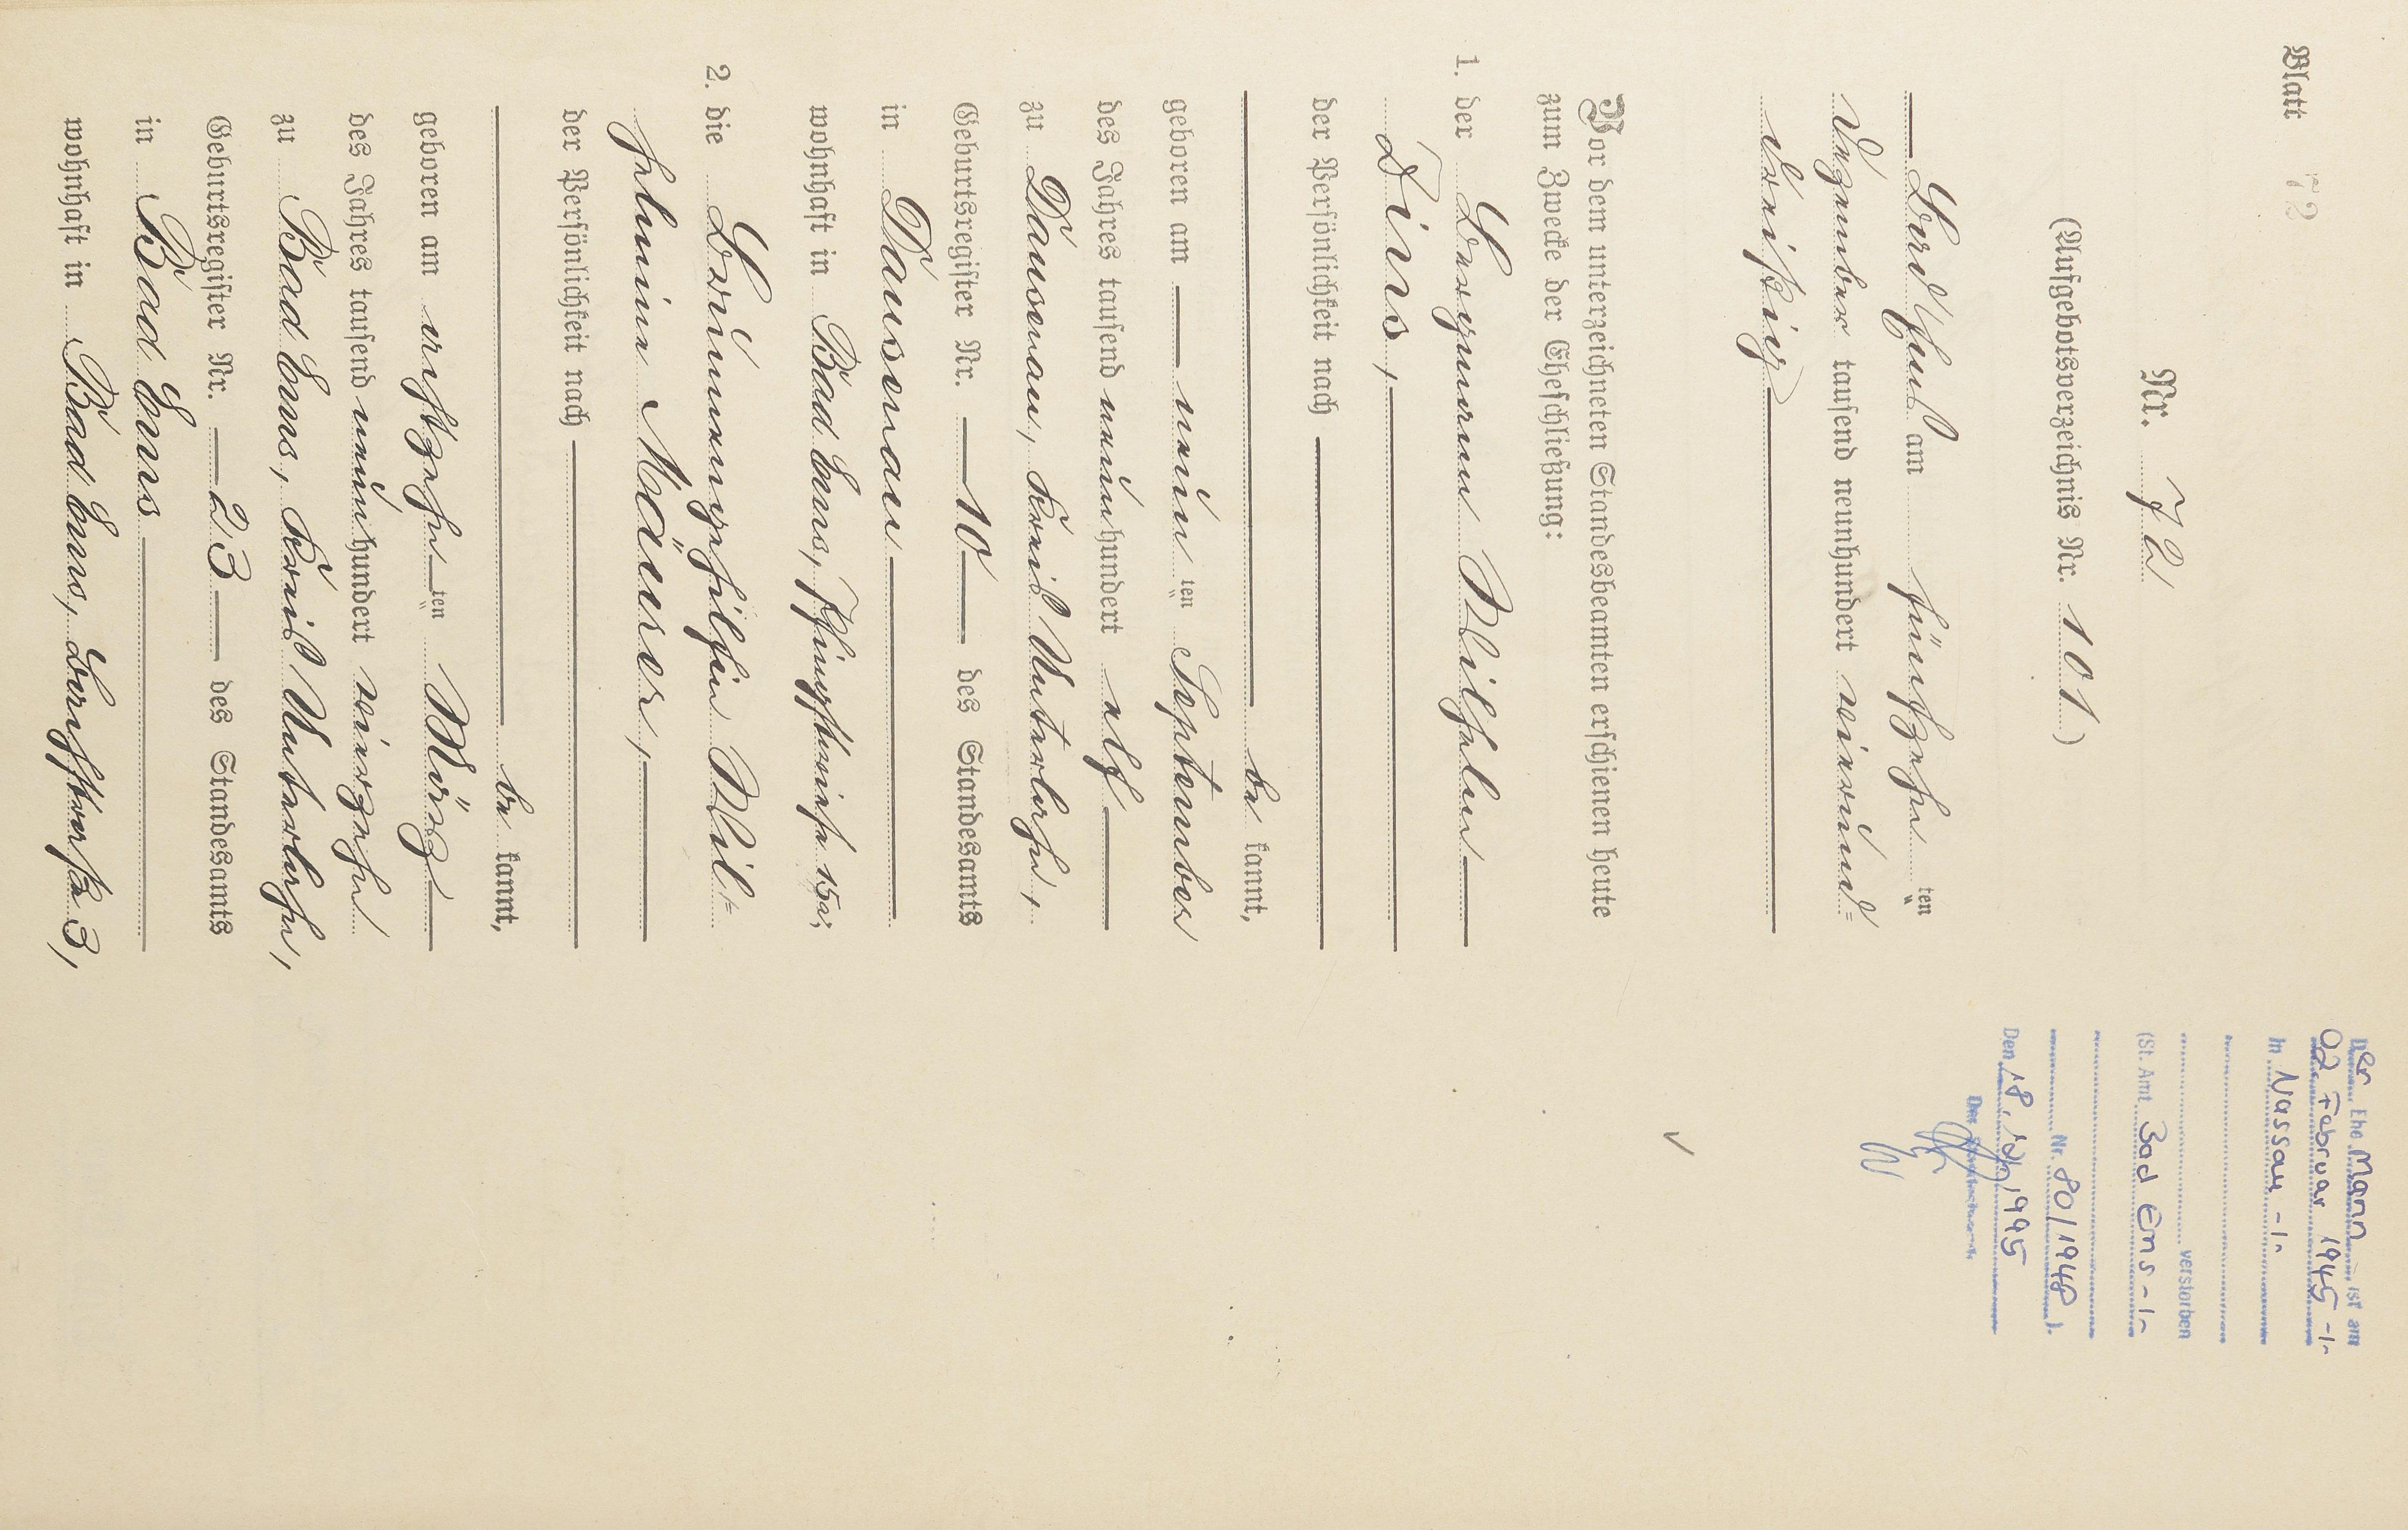 Blatt 72
Nr. 72
(Aufgebotsverzeichnis Nr. 101.)
Bad Ems am fünfzehn ten
Dezember tausend neunhundert vierund=
dreißig
Vor dem unterzeichneten Standesbeamten erschienen heute
zum Zwecke der Eheschließung:
1. der Bergmann Wilhelm
der Persönlichkeit nach
be kannt,
geboren am neun ten September
des Jahres tausend neun hundert elf
zu Dausenau, Kreis Unterlahn,
Geburtsregister Nr. 10 des Standesamts
in Dausenau
wohnhaft in Bad Ems, Pfingstwiese 15a;
2. die Brunnengehilfin Wil=
helmine
der Persönlichkeit nach
be kannt,
geboren am achtzehn ten März
des Jahres tausend neun hundert vierzehn
zu Bad Ems, Kreis Unterlahn,
Geburtsregister Nr. 23 des Standesamts
in Bad Ems
wohnhaft in Bad Ems, 3,
Der Ehe Mann ist am
02. Februar 1945 -1-
in Nassau -1-
verstorben
(St. Amt Bad Ems -1-
Nr. 80/1948 ).
Den 18. 1995